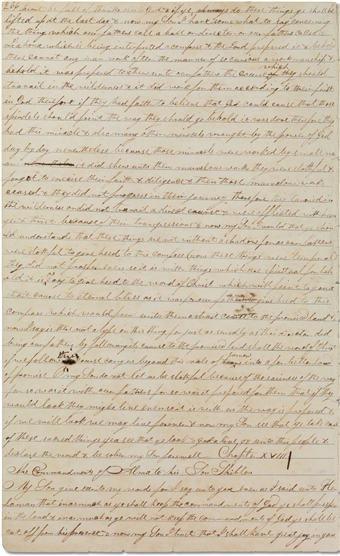 lifted up at the last day & now my Son I have somewhat to say concerning
the thing which our fathers call a ball or director or our fathers called it
liahona which is being interpreted a compass & the Lord prepared it & behold
there cannot any man work after the manner of so curious a workmanship &
behold it was prepared to shew unto our fathers the course which they should
travel in the wilderness & it did work for them according to their faith
in God therefore if they had faith to believe that God could cause that those
spindles should point the way they should go behold it was done therefore they
had this miracle & also many other miracles wrought by the power of God
day by day nevertheless because those miracles were worked by small means
it did shew unto them marvelous works they were slothful &
forgot to exercise their faith & diligence & then those marvelous works
ceased & they did not progress in their journey therefore they tarried in
the wilderness or did not travel a direct course & were afflicted with hunger
& thirst because of their transgressions & now my Son I would that ye should
understand that these things are not without a shadow for as our fathers
were slothful to give heed to this compass now these things were temporal
they did not prosper even so it is with things which are spiritual for behold
it is as easy to give heed to the word of Christ which will point to you a
straight course to eternal bliss as it was for our fathers to give heed to this
compass which would point unto them a straight course to the promised land &
now I say is there not a type in this thing for just as surely as this director did
bring our fathers by following its course to the promised land shall the words of Christ
if we follow their course carry us beyond this vale of sorrow into a far better land
of promise O my Son do not let us be slothful because of the easiness of the way
for so was it with our fathers for so was it prepared for them that if they
would look they might live even so it is with us the way is prepared &
if we will look we may live forever & now my Son see that ye take care
of these sacred things yea see that ye look to God & live go unto this people &
declare the word & be sober my Son farewell Chapter XVIII
The Commandments of Alma to his Son Shiblon
My Son give ear to my words for I say unto you even as I said unto
Helaman that inasmuch as ye shall keep the commandments of God ye shall prosper
in the land & inasmuch as ye will not keep the commandments of God ye shall be
cut off from his presence & now my Son I trust that I shall have great joy in you